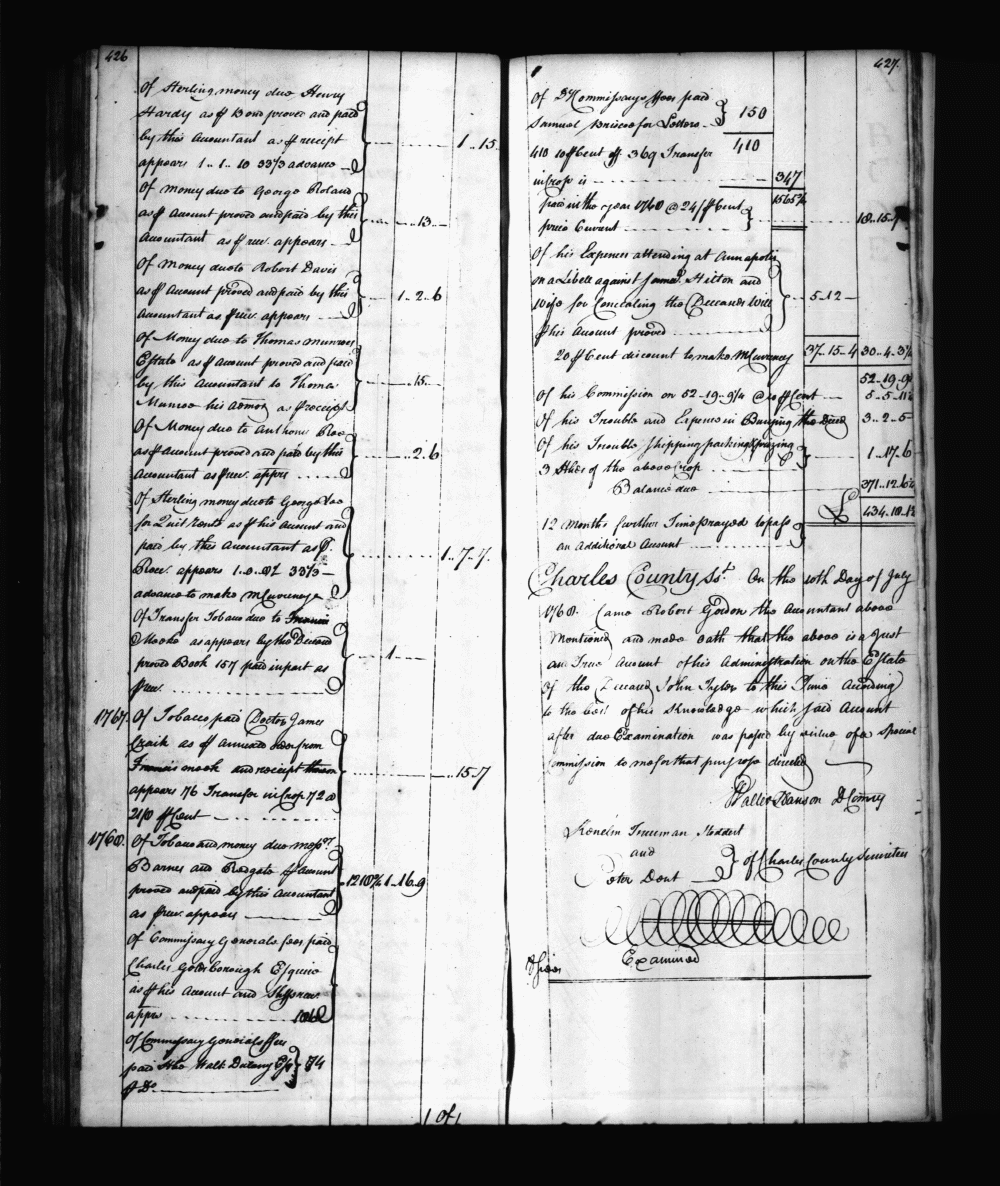 426
Of Sterling money due Henry
Hardy as ⅌ Bond proved and paid
by this Accountant as ⅌ receipt
appears 1..1..10 33⅓ advance 1..15..
Of money due to George Roland
as ⅌ Account proved and paid by this ..13..
Accountant as ⅌ rect. appears
Of Money due to Robert Davis
as ⅌ Account proved and paid by this 1..2..6
Accountant as ⅌ rect. appears
Of Money due to Thomas Munroes
Estate as ⅌ Account proved and paid
by this Accountant to Thomas ..15..
Munroe his Admor. as ⅌ receipt
Of Money due to Anthony
as ⅌ Account proved and paid by this ..2..6
Accountant as ⅌ rect. appears
Of Sterling money due to George Lee
for Quit Rents as ⅌ his Account and
paid by this Accountant as ⅌ 1..7..7.
Rect. appears 33⅓
advance to make mCurrency
Of Transfer Tobacco due to Francis
Mooke as appears by the Deceased
proved Book 157 paid in part as ..1..
⅌ rect.
1767. Of Tobacco paid Doctor James
Craik as ⅌ annexed Order from
Francis mook and receipt thereon ..15..7
appears 76 Transfer in Crop 72 @
21/0 ⅌ Cent
1768. Of Tobacco and money due mess.rs
Barnes and Ridgate ⅌ Account
proved and paid by this Accountant 1218¾ 1..16..9
as ⅌ rect. appears
Of Commissary Generals fees paid
Charles Goldsborough Esquire
as ⅌ his Account and Shffs rect.
apprs
Of Commissary Generals ffees
paid Hho Walt. Dulany Esqr 74
⅌ Do.
1 Of 1
427.
Of D Commissarys ffees paid
Samuel Briscoe for Letters 150
410 10 ⅌ Cent ⅌ 369 Transfer 410
in Crop is 347
paid in the year 1768 @ 24/ ⅌ Cent 1565¾
price Current 18..15..9
Of his Expences attending at Annapolis
on a Libell against Hilton and
Wife for Concealing the Deceaseds Will 5..12
⅌ his Account proved
20 ⅌ Cent discount to make mCurrency 37..15..4 30..4..3¼
52..19..9¼
Of his Commission on 52..19..9¼ @ 10 ⅌ Cent 5..5..11½
Of his Trouble and Expences in Burying the Deced 3..2..5
Of his Trouble Shipping packing & prizing
3 Hhds of the above Crop 1..17..6
Balance due 371..12..6
£ 434..18..1½
12 Months further Time prayed to pass
an additional Account
Charles County Sst. On the 10th Day of July
1768. Came Robert Gordon the Accountant above
Mentioned and made Oath that the above is a Just
and True Account of his Administration on the Estate
Of the Deceased John Taylor to this Time According
to the best of his Knowledge which said Account
after due Examination was passed by virtue of a Special
Commission to me for that purpose directed
Walter Hanson D Comry
Kenelm Truman Stoddert
and } of Charles County Sureties
Peter Dent
Examined